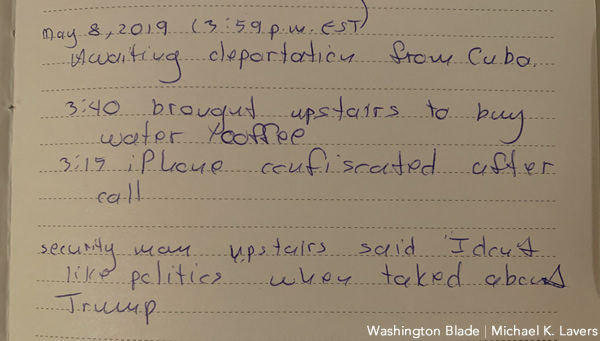 May 8, 2019 (3:59 p.m. EST)
Awaiting deportation from Cuba.
3:40 brought upstairs to buy
water + coffee
3:15 iPhone confiscated after
call
security man upstairs said "I don't
like politics when taked about
Trump
Washington Blade | Michael K. Lavers